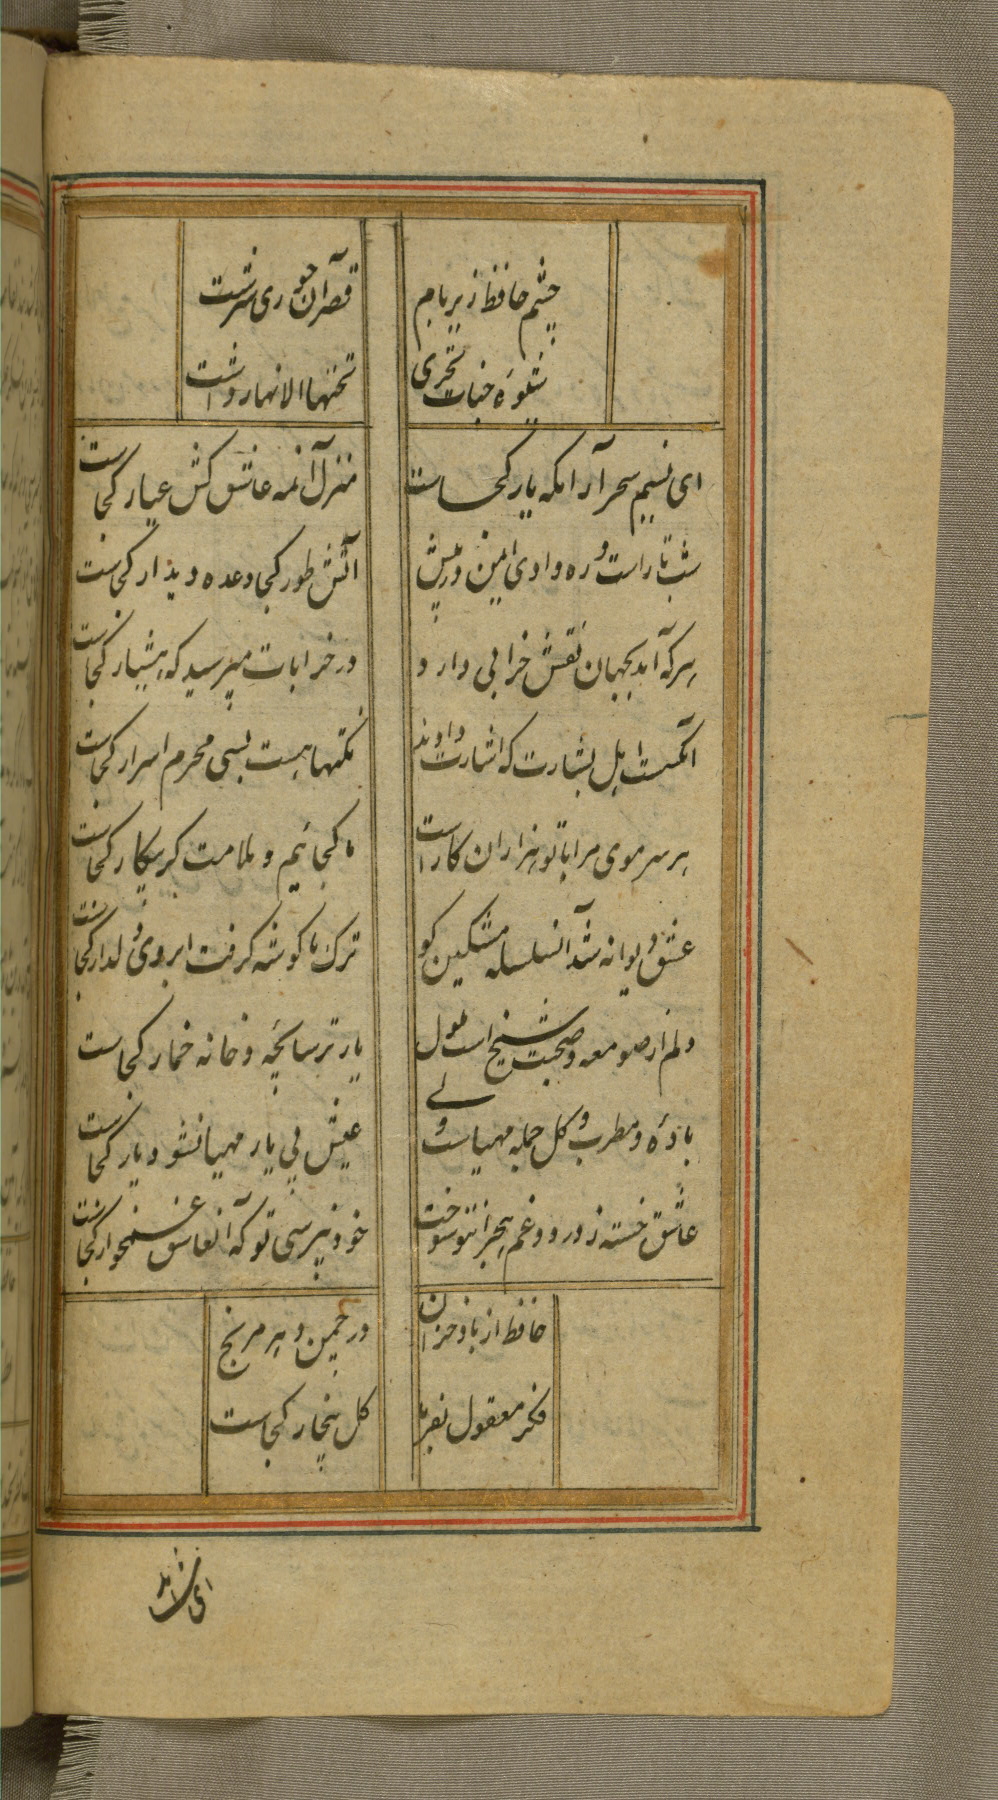 چشم حافظ زیر بام
قصر آن حوری سرشت
شیوهٔ جنات تجری
تحتها الانهار داشت
ای نسیم سحر آرامگه یار کجاست
منزل آن مه عاشق کش عیار کجاست
شب تار است و ره وادی ایمن در پیش
آتش طور کجا وعده دیدار کجاست
هر که آمد بجهان نقش خرابی دارد
در خرابات مپرسید که هشیار کجاست
آنکس است اهل بشارت که اشارت داند
نکتها هست بسی محرم اسرار کجاست
هر سر موی مرا با تو هزاران کار است
ما کجائیم و ملامت گر بیکار کجاست
عشق دیوانه شد آن سلسله مشکین کو
ترک ما گوشه گرفت ابروی دلدار کجاست
دلم از صومعه و صحبت شیخ است ملول
یار ترسابچه و خانه خمار کجاست
بادهٔ و مطرب و گل جمله مهیاست ولی
عیش بی یار مهیا نشود یار کجاست
عاشق خسته ز درد و غم هجر تو سوخت
خود نپرسی تو که آن عاشق غمخوار کجاست
حافظ از باد خزان
در چمن دهر مرنج
فکر معقول بفرما
گل بیخار کجاست
ای شاهد